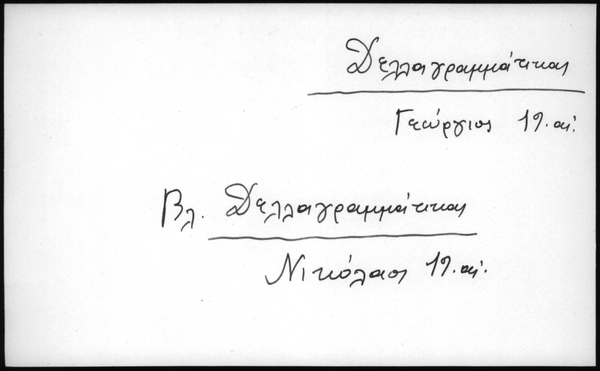 Δελλαγραμμάτικας
Γεώργιος 19. αι.
Βλ. Δελλαγραμμάτικας
Νικόλαος 19. αι.